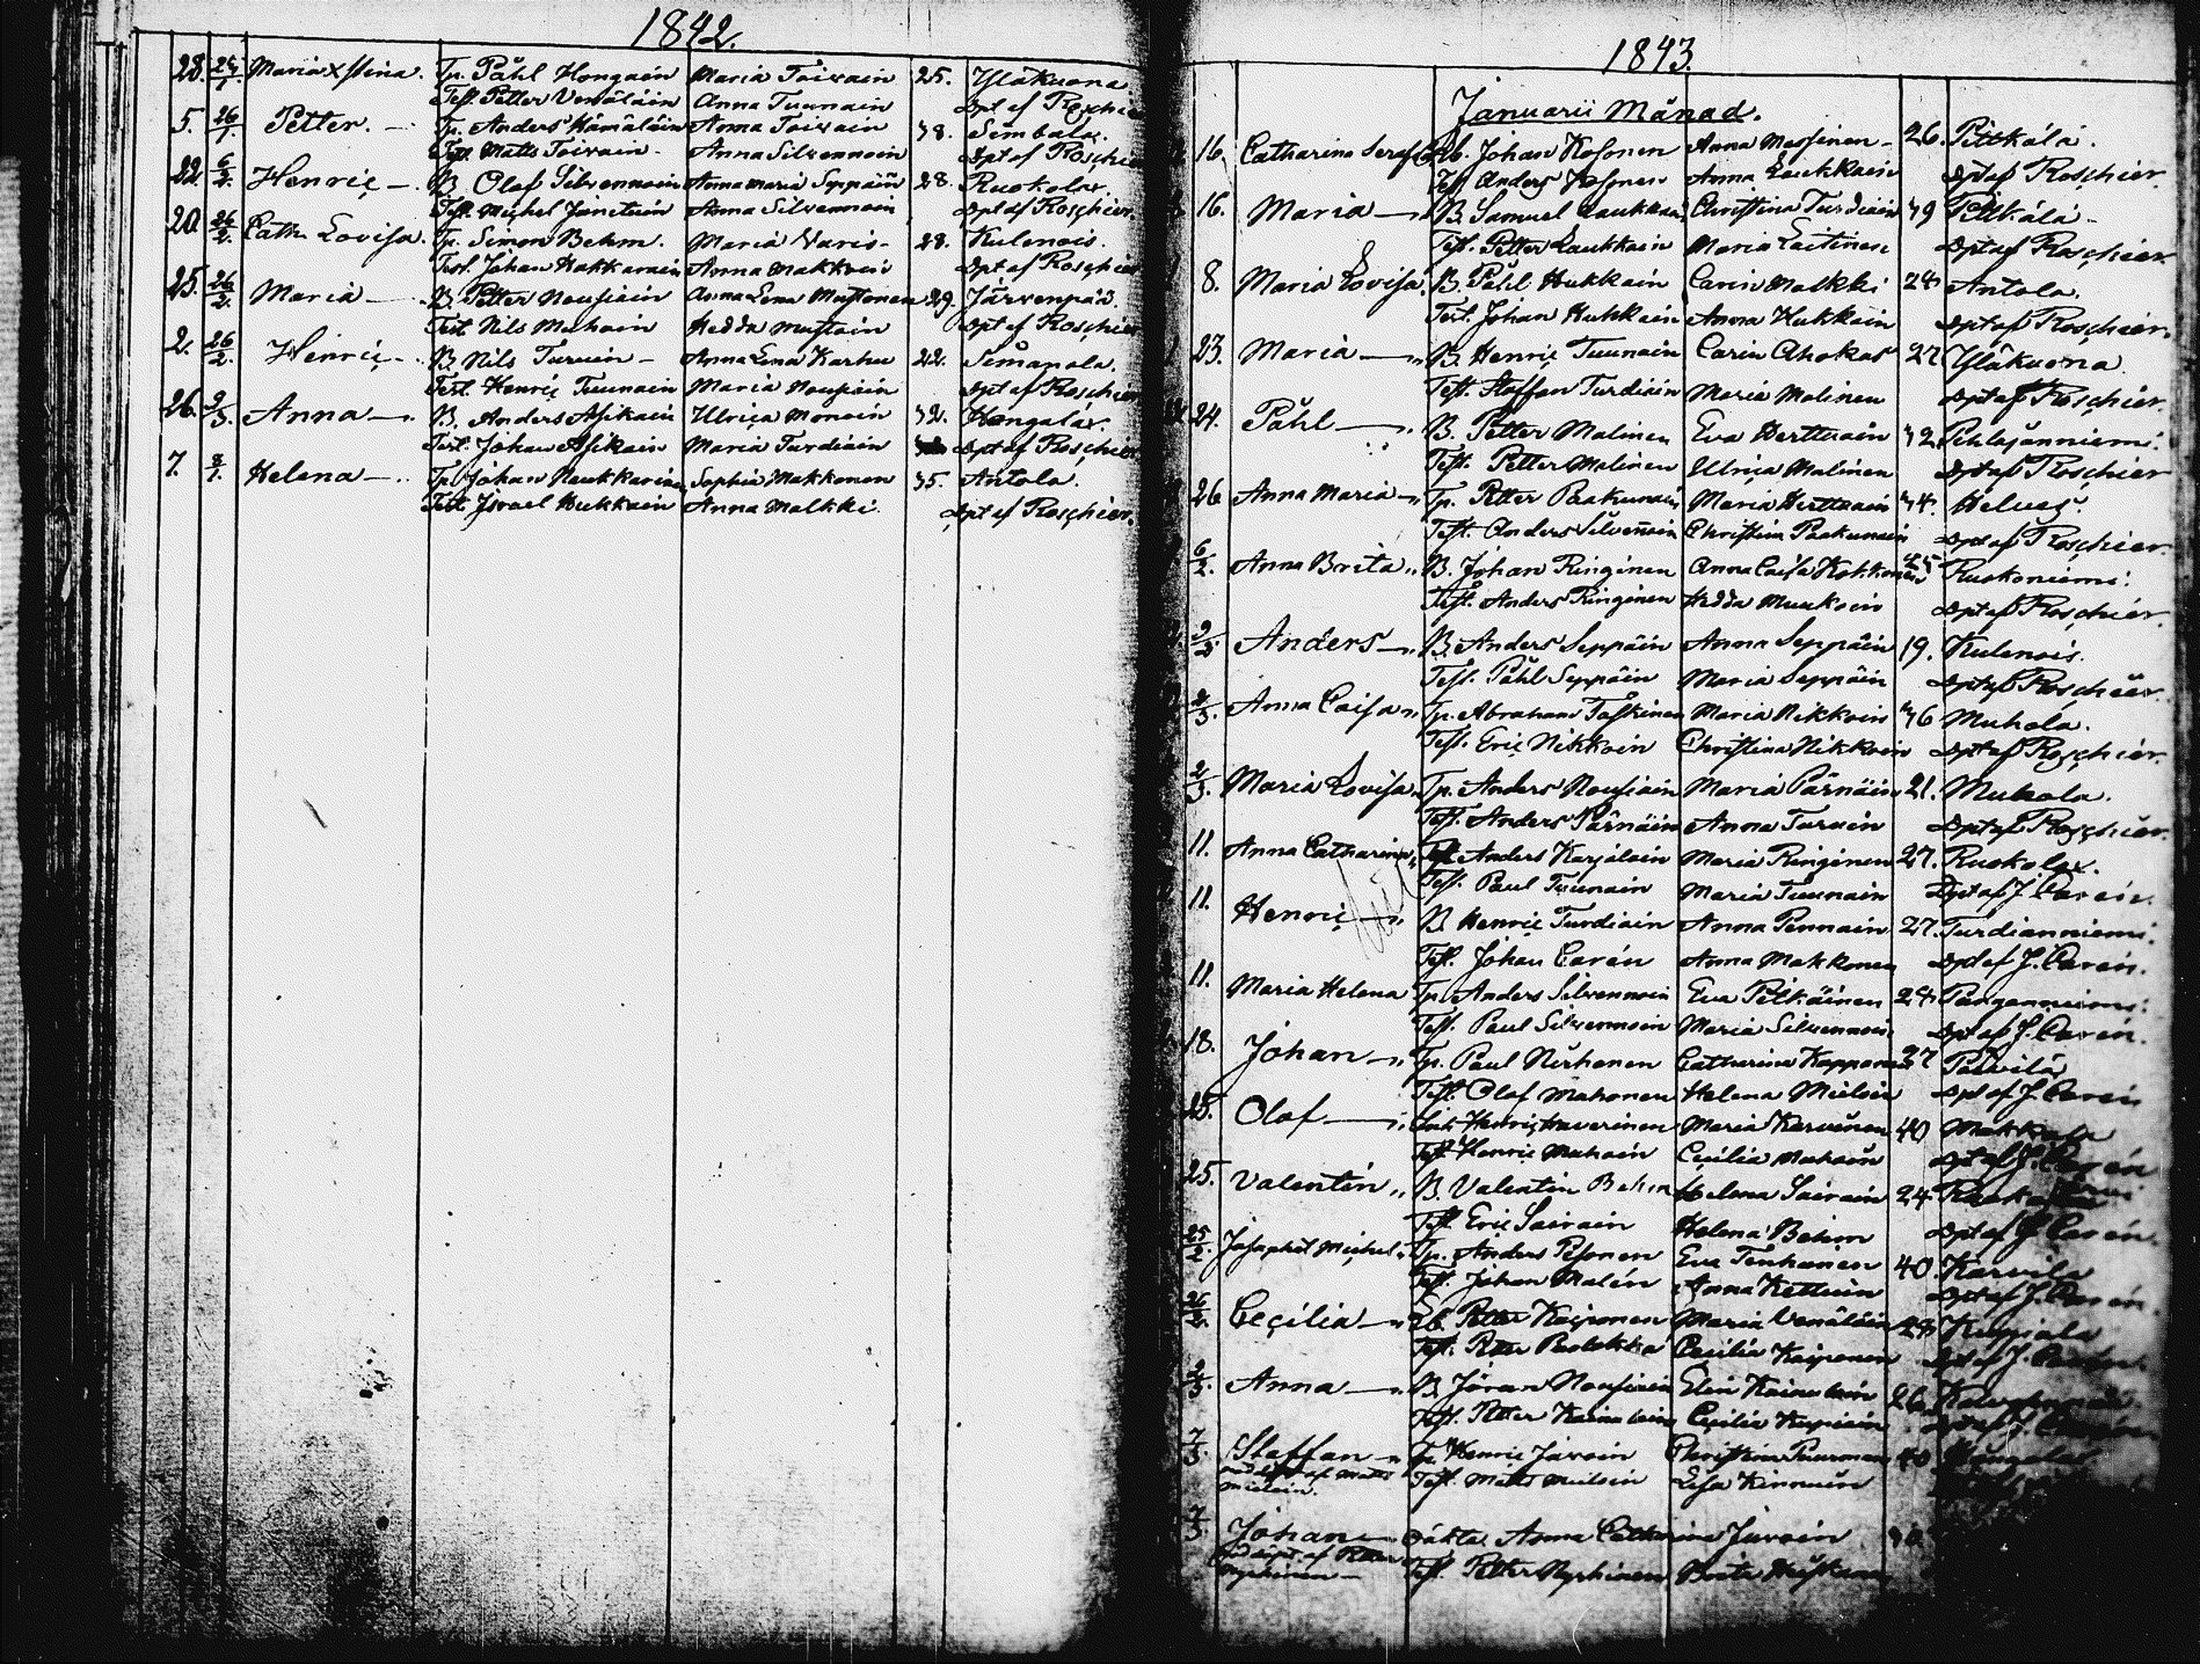 1842.
28. 24/1. Maria Xstina. Tp. Påhl Hongain Maria Toivain 25. Yläkuona
Test. Petter Venäläin Anna Tuunain Dpt af Roschier
5. 26/1. Petter. Tp. Anders Hämäläin Anna Toivain 38. Simbala.
Test. Matts Toivain Anna Silvennoin Dpt af Roschier
22. 6/2. Henric B. Olof Silvennoin Anna Maria Seppäin 28. Ruokolax.
Test. Michel Jänituin Anna Silvennoin Dpt af Roschier
20. 26/2. Cath Lovisa. Tp. Simon Behm. Maria Varis 28. Kulenois.
Test. Johan Makkarain Anna Makkoin Dpt af Roschier
25. 26/2. Maria B. Petter Nousiain Anna Lena Mustonen 29. Järvenpää.
Test. Nils Muhoin Hedda Mustoin Dpt af Roschier
2. 26/2. Henric B. Nils Turuin Anna Lena Karhu 22. Simanala.
Test. Henric Tuunain Maria Nousiain Dpt af Roschier
26. 2/3. Anna B. Anders Asikain Ulrica Monoin 32. Hangalax.
Test. Johan Asikain Maria Turdiain Dpt af Roschier
7. 8/1. Helena Tp. Johan Naukkarinen Sophia Makkonen 35. Antola.
Test. Israel Hukkain Anna Malkki. Dpt af Roschier.
1843.
Januarii Månad.
16. Catharina Seraf. Johan Kosonen Anna Massinen 26. Pitkälä.
Test. Anders Kosonen Anna Laukkain Dpt af Roschier.
16. Maria B. Samuel Laukkain Christina Turdiain 39 Pitkälä
Test. Petter Laukkain Maria Laitinen Dpt af Roschier.
8. Maria Lovisa. B. Påhl Hukkain Carin Malkki 24 Antola.
Test. Johan Hukkain Anna Hukkain Dpt af Roschier.
23. Maria B. Henric Tuunain Carin Ahokas 27 Yläkuona.
Test. Staffan Turdiain Maria Malinen Dpt af Roschier.
24. Påhl B. Petter Malinen Eva Herttuain 32 Pehlajänniemi.
Test. Petter Malinen Ulrica Malinen Dpt af Roschier
26 Anna Maria Tp. Petter Paakunain Maria Herttuain 34. Haluez.
Test. Anders Silvenoin Christina Paakunain Dpt af Roschier.
6/2. Anna Brita B. Johan Ringinen Anna Caisa Kokkonen 25 Ruokoniemi.
Test. Anders Ringinen Hedda Muukoin Dpt af Roschier.
9/2. Anders B. Anders Seppäin Anna Seppäin 19. Kulenois.
Test. Påhl Seppäin Maria Seppäin Dpt af Roschier.
2/3. Anna Caisa Tp. Abraham Taskinen Maria Nikkoin 36 Muhola.
Test. Eric Nikkoin Christina Nikkoin Dpt af Roschier.
2/3. Maria Lovisa Tp. Anders Nousiain Maria Pärnäin 21. Muhola.
Test. Anders Pärnäin Anna Turuin Dpt af Roschier.
11. Anna Catharina Anders Karjalain Maria Ringinen 27. Ruokolax.
Test. Paul Tuunain Maria Tuunain Dpt af J. Carén.
11. Henric B. Henric Turdiain Anna Pennain 27. Turdianniemi.
Test. Johan Carén Anna Makkonen Dpt af J. Carén.
11. Maria Helena Tp. Anders Silvennoin Eva Pelkäinen 24
Test. Paul Silvennoin Maria Silvennoin Dpt af J. Carén.
18. Johan Tp. Paul Nuhonen Catharina Kapponen 27
Test. Olof Mahonen Helena Mieloin Dpt af J. Carén
25. Olof Henric Haverinen Maria Karvinen 40 Makkola
Test. Henric Muhoin Cecilia Muhoin Dpt af J. Carén
25. Valentin B. Valentin Behm Helena Sairain 24.
Test. Eric Sairain Helena Behm Dpt af J. Carén.
25/2. Josaphat Michel Tp. Anders Pesonen Eva Tenhunen 40. Karvila
Test. Johan Malén Anna Kettuin Dpt af J. Carén.
26/2. Cecilia Petter Kaiponen Maria Venäläin 28 Kupiala
Test. Petter Puolakka Cecilia Kaiponen Dpt af J. Carén
2/3. Anna B. Jöran Nousiain Elin Kainulain 26
Test. Petter Kainulain Cecilia Kupiain
7/3. Staffan Tp. Henric Juvoin Christina Puurman 40
nöddöpt af Matts Test. Matts Mieloin Lisa Kinnuin
Mieloin.
7/3. Johan oäkta Anna Catharina Juvoin
nöddöpt af Petter
Nyrhinen Test. Petter Nyrhinen Brita